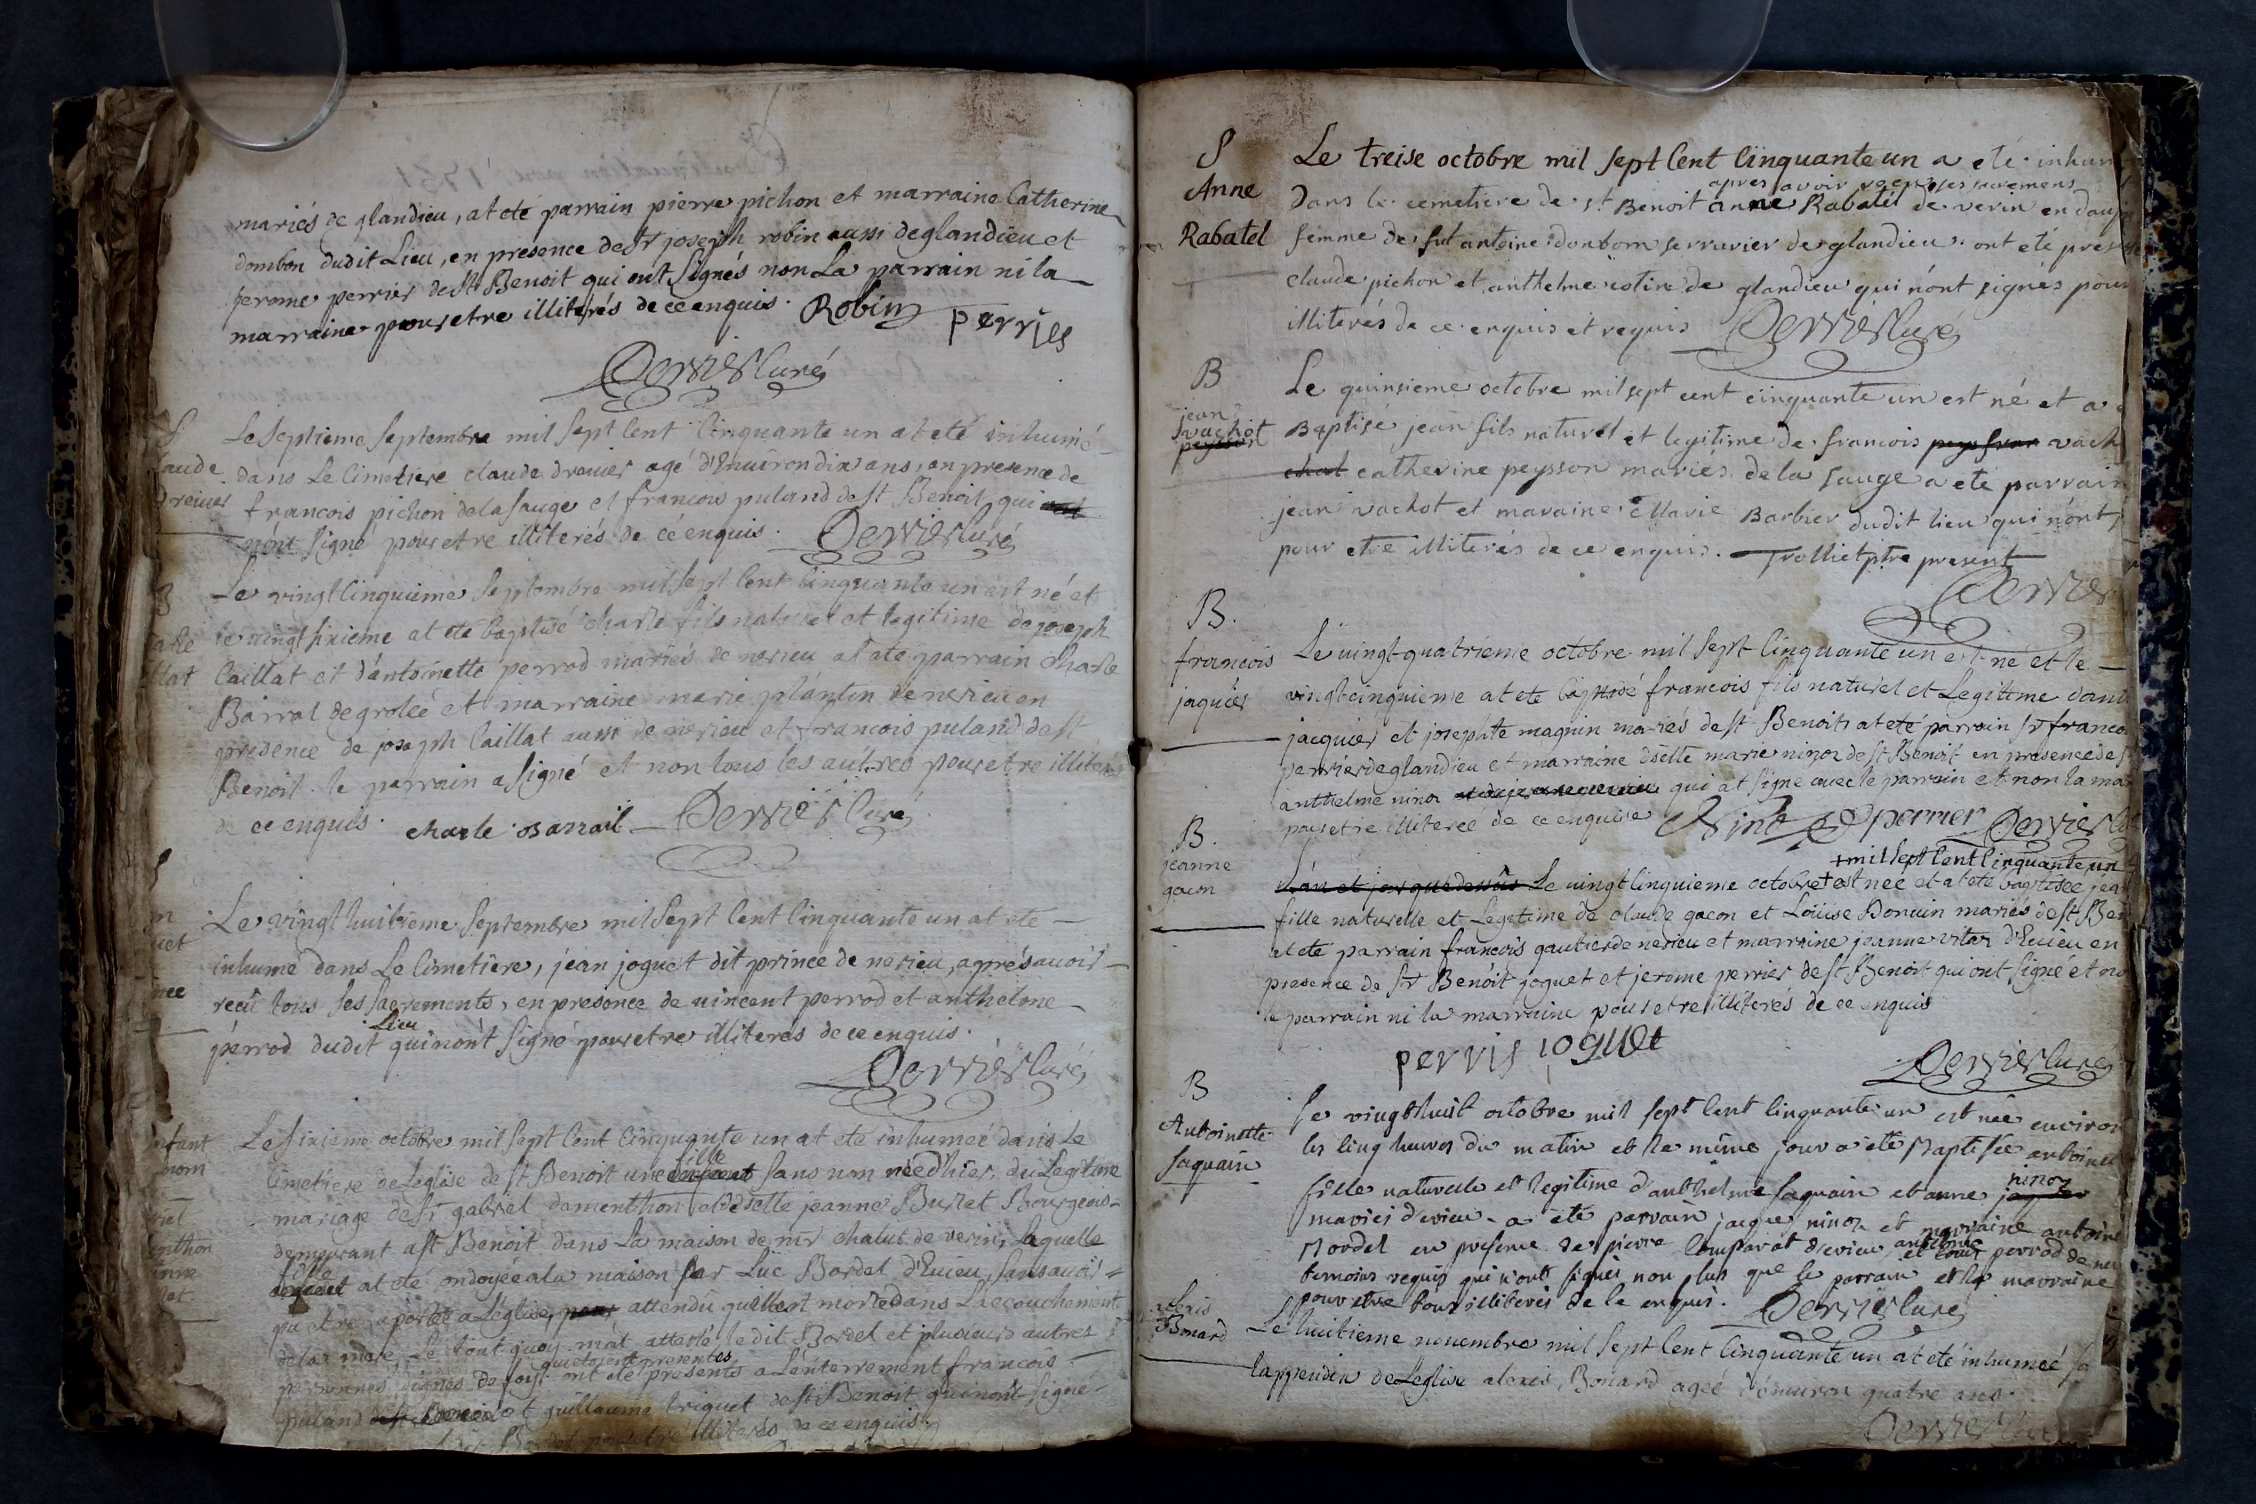 mariés de glandieu, at eté parrain pierre pichon et marraine Catherine
dombon dudit Lieu, en presence de Sr joseph robin aussi de glandieu et
jerome perrier de St Benoit qui ont signés non La parrain ni la
marraine pour etre illiterés de ce enquis. Robin perrier
Perrier Curé
S
Le septieme septembre mil sept Cent Cinquante un at eté inhumé
laude dans Le Cimetiere claude dreuier agé d'Environ dix ans, en presence de
dreuier francois pichon de la sauge et francois puland de st Benoit, qui
n'ont signé pour etre illiterés de ce enquis. Perrier Curé
B
Le vingt Cinquieme septembre mil sept Cent Cinquante un est né et
le vingt sixieme at eté baptisé charle fils naturel et legitime de joseph
llat Caillat et d'antoinette perrod mariés de nerieu at eté parrain charle
Barral de grolée et marraine marie plantin de nerieu en
presence de joseph Caillat aussi de nerieu et francois puland de st
Benoit. le parrain a signé et non tous les autres pour etre illiterés
de ce enquis. charle Barrail Perrier Curé
Le vingt huitieme septembre mil sept Cent Cinquante un at eté
inhumé dans Le Cimetiere, jean joguet dit prince de nerieu, aprés auoir
recu tous ses sacrements, en presence de vincent perrod et anthelme
Lieu
perrod dudit qui n'ont signé pour etre illiterés de ce enquis.
Perrier Curé
nfant
nom
Le sixieme octobre mil sept Cent Cinquante un at eté inhumeé dans Le
fille
Cimetiere de Leglise de st Benoit une enfant sans nom née d'hier, du Legitime
mariage de Sr gabriel de menthon et dselle jeanne Burlet Bourgeois
demeurant a st Benoit dans La maison de mr chalut de verin, Laquelle
fille
at eté ondoyée a la maison par Luc Bordel d'Euieu, sans auoir
pu etre aportée a Léglise, attendu quelle est morte dans L'accouchement
de la mere, Le tout quoy m'at attesté le dit Bordel et plusieurs autres
qui etoient presentes
personnes dignes de foy. ont eté presents a L'enterrement francois
puland et guillaume triquet de st Benoit qui n'ont signé
illiterés de ce enquis
S
Anne
Rabatel
Le treise octobre mil sept Cent Cinquante un a eté inhum
apres avoir recu ses sacremens
Dans le cemetiere de st Benoit anne Rabatel de verin en dauph
femme de fut antoine donbom serrurier de glandieu. ont eté pres
claude pichon et anthelme cotin de glandieu qui n'ont signés pour
illiterés de ce enquis et requis Perrier Curé
B
jean
vachot
peysson
Le quinsieme octobre mil sept cent cinquante un est né et a
Baptisé jean fils naturel et legitime de francois vach
catherine peysson mariés de la sauge a ete parrain
jean vachot et maraine Marie Barbier dudit lieu qui n'ont
pour etre illiterés de ce enquis. Trolliet ptre present
Perrier
B.
francois
jaquier
Le vingt quatrieme octobre mil sept Cinquante un est né et le
vingt cinquieme at ete baptisé francois fils naturel et Legitime dant
jacquier et josephte magnin mariés de st Benoit at eté parrain sr franco
perrier de glandieu et marraine dselle marie ninoz de st Benoit en presence de s
anthelme ninoz qui at signé avec le parrain et non la mar
pour etre illiteree de ce enquise Perrier Perrier Cu
B.
jeanne
gacon
+ mil sept Cent Cinquante un
L'an et jour que dessus Le vingt Cinquieme octobre + est nee et at eté baptisée jea
fille naturelle et Legitime de claude gacon et Loüise Donuin mariés de st Ben
at eté parrain francois gautier de nerieu et marraine jeanne vitoz d'Euieu en
presence de Sr Benoit joguet et jerome perrier de st Benoit qui ont signé et no
le parrain ni la marraine pour etre illiterés de ce enquis
perrier joguet
Perrier Curé
B
Antoinette
Jaquain
Le vingt huit octobre mil sept Cent Cinquante un est née environ
les cinq heures du matin et le même jour a été Baptisée antoinet
ninoz
fille naturelle et legitime d'anthelme Jaquain et anne
mariés d'evieu. a été parrain jacque ninoz et marraine antoine
anthelme
Mordel en presence de pierre Comparat d'evieu et perrod de ner
temoins requis qui n'ont signés non plus que le parrain et la marraine
pour etre tous illiterés de ce enquis. Perrier Curé
alexis
Bonard
Le huitieme nouembre mil sept Cent Cinquante un at eté inhumeé
lappendin de Leglise alexis Bonard ageé d'enuiron quatre ans.
Perrier Curé